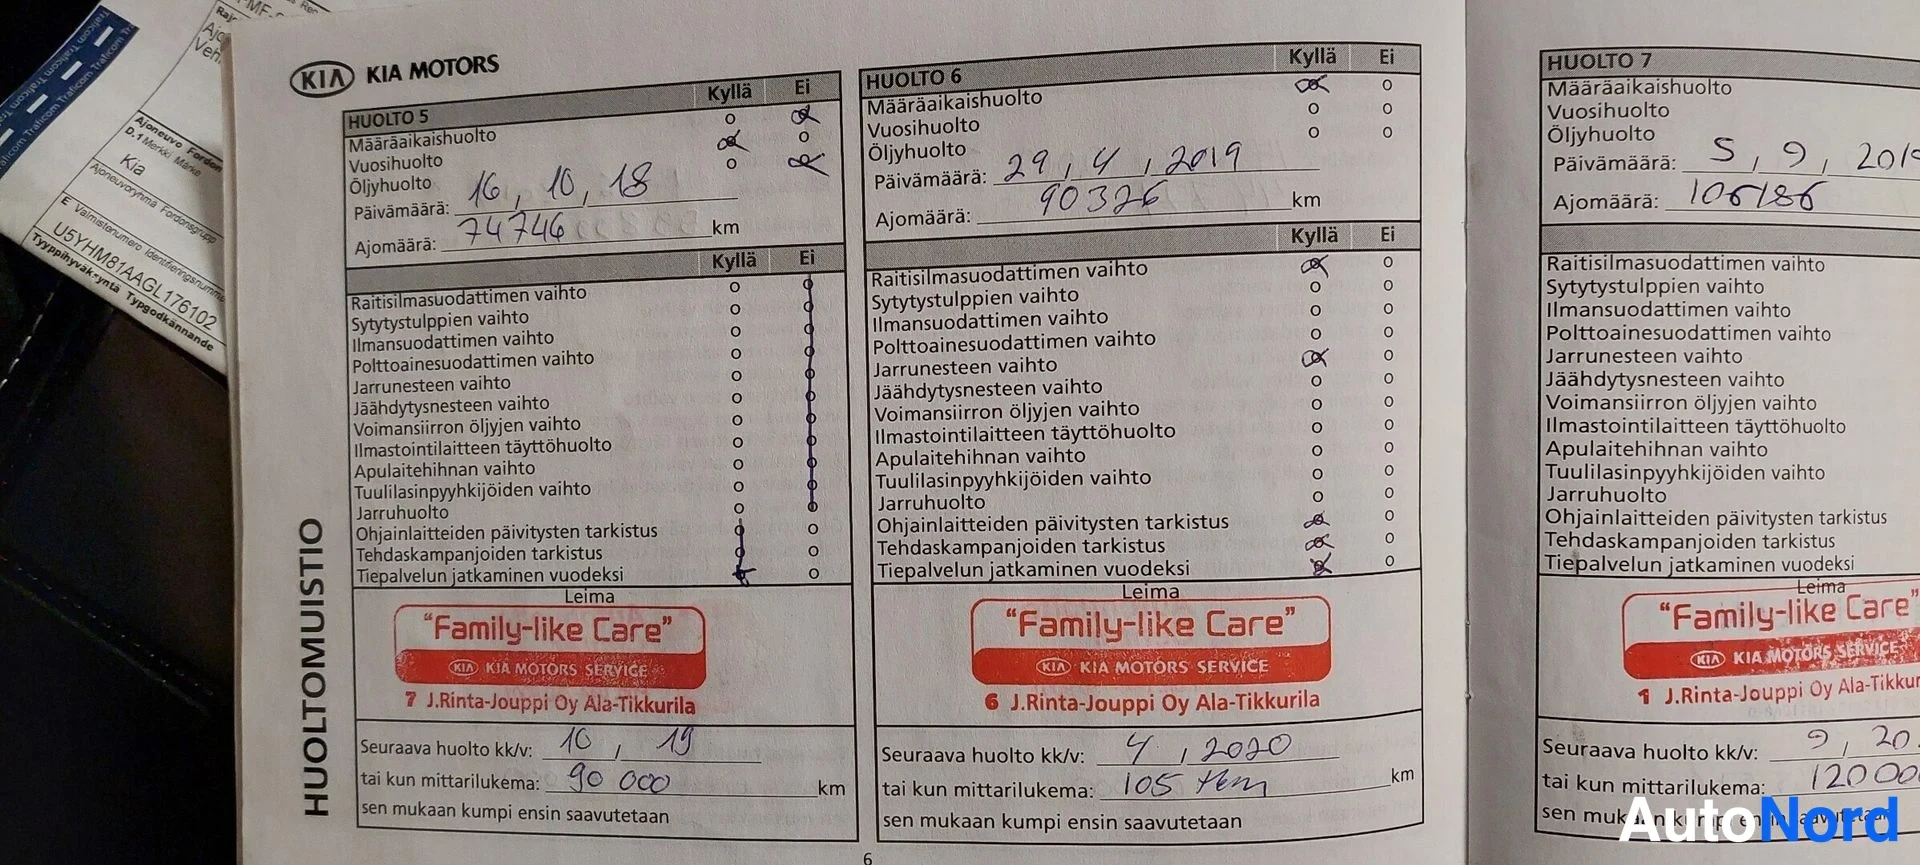 Traficom Traficom Traficom Traficom
Ajoneuvo Fordon
D.1 Merkki Märke
Kia
Ajoneuvoryhmä Fordonsgrupp
E Valmistenumero Identifieringsnummer
U5YHM81AAGL176102
Tyyppihyväksyntä Typgodkännande
KIA KIA MOTORS
HUOLTOMUISTIO
HUOLTO 5 Kyllä Ei
Määräaikaishuolto
Vuosihuolto
Öljyhuolto
Päivämäärä: 16, 10, 18
Ajomäärä: 74746 km
Kyllä Ei
Raitisilmasuodattimen vaihto
Sytytystulppien vaihto
Ilmansuodattimen vaihto
Polttoainesuodattimen vaihto
Jarrunesteen vaihto
Jäähdytysnesteen vaihto
Voimansiirron öljyjen vaihto
Ilmastointilaitteen täyttöhuolto
Apulaitehihnan vaihto
Tuulilasinpyyhkijöiden vaihto
Jarruhuolto
Ohjainlaitteiden päivitysten tarkistus
Tehdaskampanjoiden tarkistus
Tiepalvelun jatkaminen vuodeksi
Leima
"Family-like Care"
KIA KIA MOTORS SERVICE
7 J.Rinta-Jouppi Oy Ala-Tikkurila
Seuraava huolto kk/v: 10, 19
tai kun mittarilukema: 90 000 km
sen mukaan kumpi ensin saavutetaan
HUOLTO 6 Kyllä Ei
Määräaikaishuolto
Vuosihuolto
Öljyhuolto
Päivämäärä: 29, 4, 2019
Ajomäärä: 90326 km
Kyllä Ei
Raitisilmasuodattimen vaihto
Sytytystulppien vaihto
Ilmansuodattimen vaihto
Polttoainesuodattimen vaihto
Jarrunesteen vaihto
Jäähdytysnesteen vaihto
Voimansiirron öljyjen vaihto
Ilmastointilaitteen täyttöhuolto
Apulaitehihnan vaihto
Tuulilasinpyyhkijöiden vaihto
Jarruhuolto
Ohjainlaitteiden päivitysten tarkistus
Tehdaskampanjoiden tarkistus
Tiepalvelun jatkaminen vuodeksi
Leima
"Family-like Care"
KIA KIA MOTORS SERVICE
6 J.Rinta-Jouppi Oy Ala-Tikkurila
Seuraava huolto kk/v: 4, 2020
tai kun mittarilukema: 105 tkm km
sen mukaan kumpi ensin saavutetaan
6
HUOLTO 7
Määräaikaishuolto
Vuosihuolto
Öljyhuolto
Päivämäärä: 5, 9, 2019
Ajomäärä: 106186
Raitisilmasuodattimen vaihto
Sytytystulppien vaihto
Ilmansuodattimen vaihto
Polttoainesuodattimen vaihto
Jarrunesteen vaihto
Jäähdytysnesteen vaihto
Voimansiirron öljyjen vaihto
Ilmastointilaitteen täyttöhuolto
Apulaitehihnan vaihto
Tuulilasinpyyhkijöiden vaihto
Jarruhuolto
Ohjainlaitteiden päivitysten tarkistus
Tehdaskampanjoiden tarkistus
Tiepalvelun jatkaminen vuodeksi
Leima
"Family-like Care"
KIA KIA MOTORS SERVICE
1 J.Rinta-Jouppi Oy Ala-Tikkur
Seuraava huolto kk/v: 9, 20
tai kun mittarilukema: 120 000
sen mukaan kumpi ensin saavutetaan
AutoNord